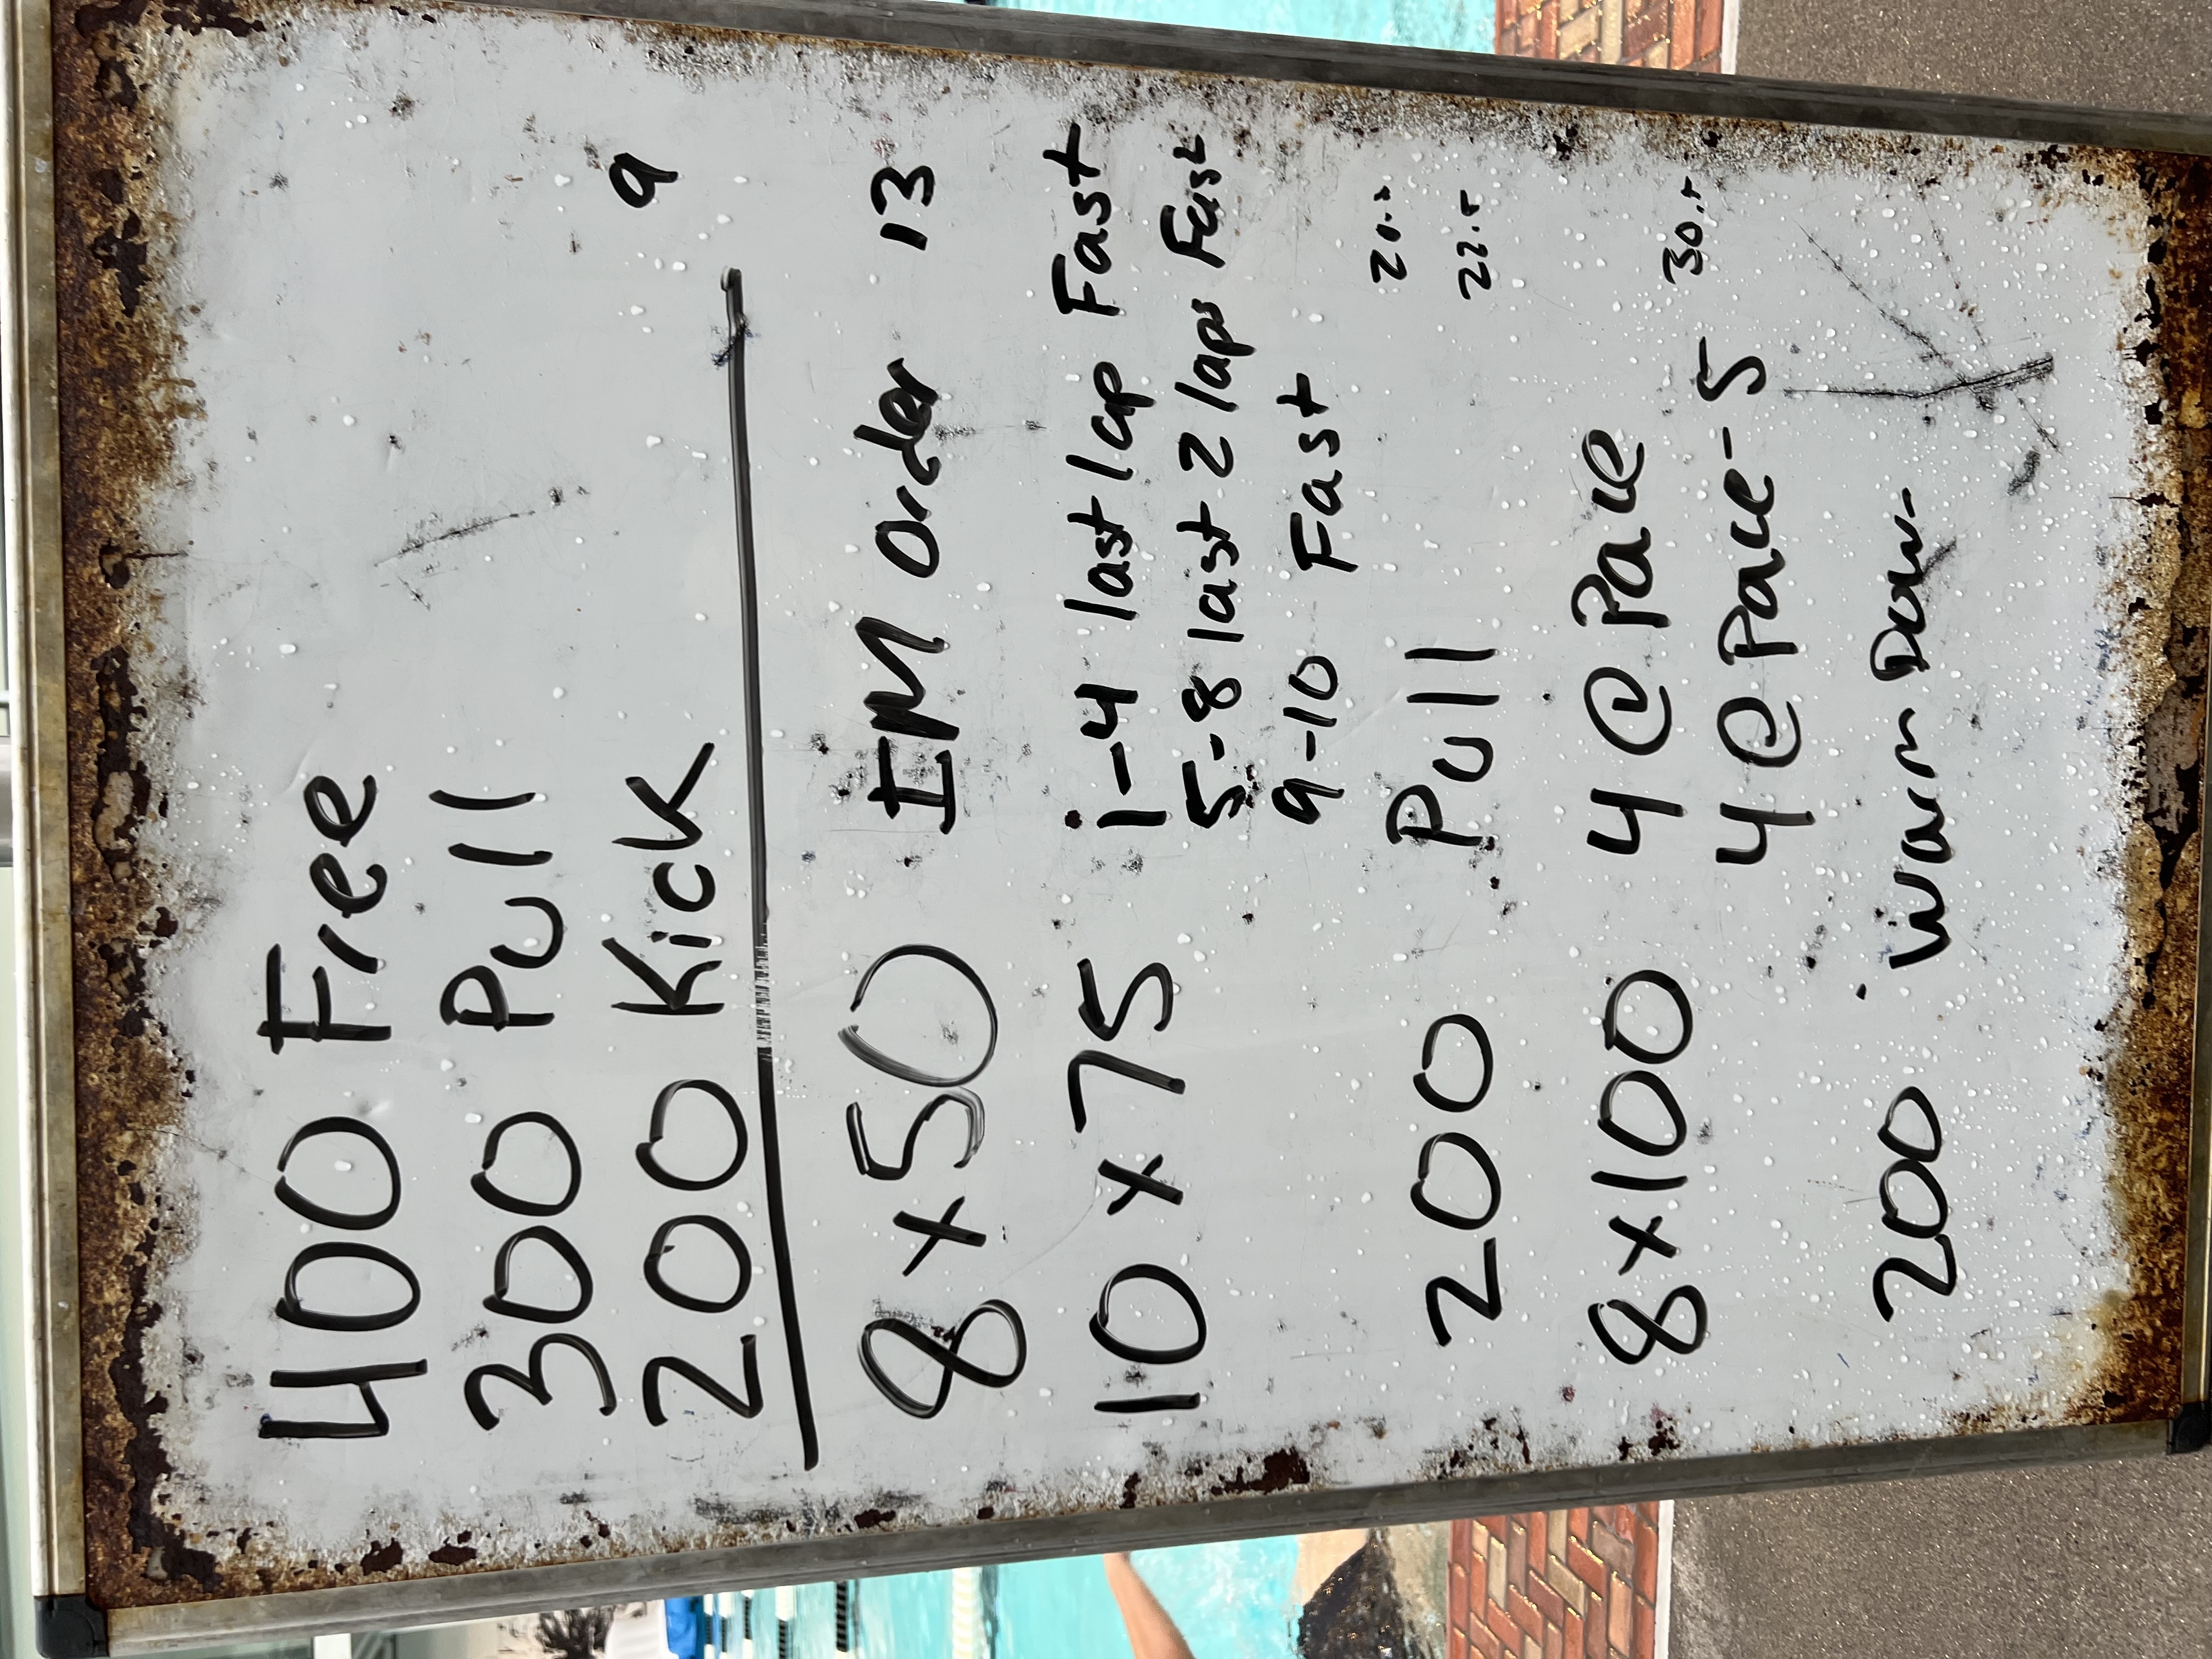 400 Free
300 Pull
200 Kick 9
8 x 50 IM Order 13
10 x 75 1-4 last lap Fast
5-8 last 2 laps Fast
9-10 Fast 20..
200 Pull 22.5
8 x 100 4 @ Pace 30..
4 @ Pace - 5
200 Warm Down